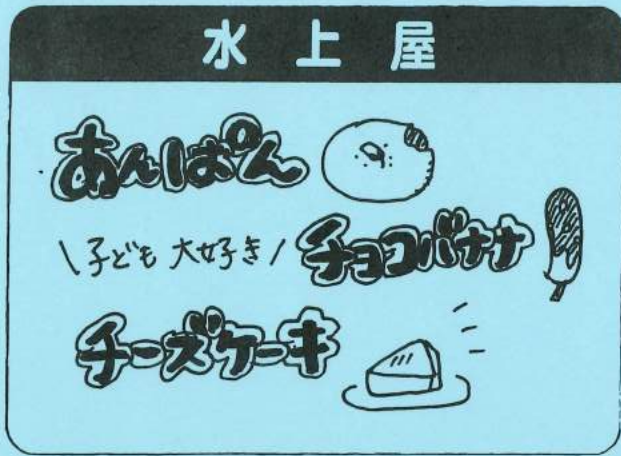 水上屋
あんぱん
\子ども大好き/ チョコバナナ
チーズケーキ